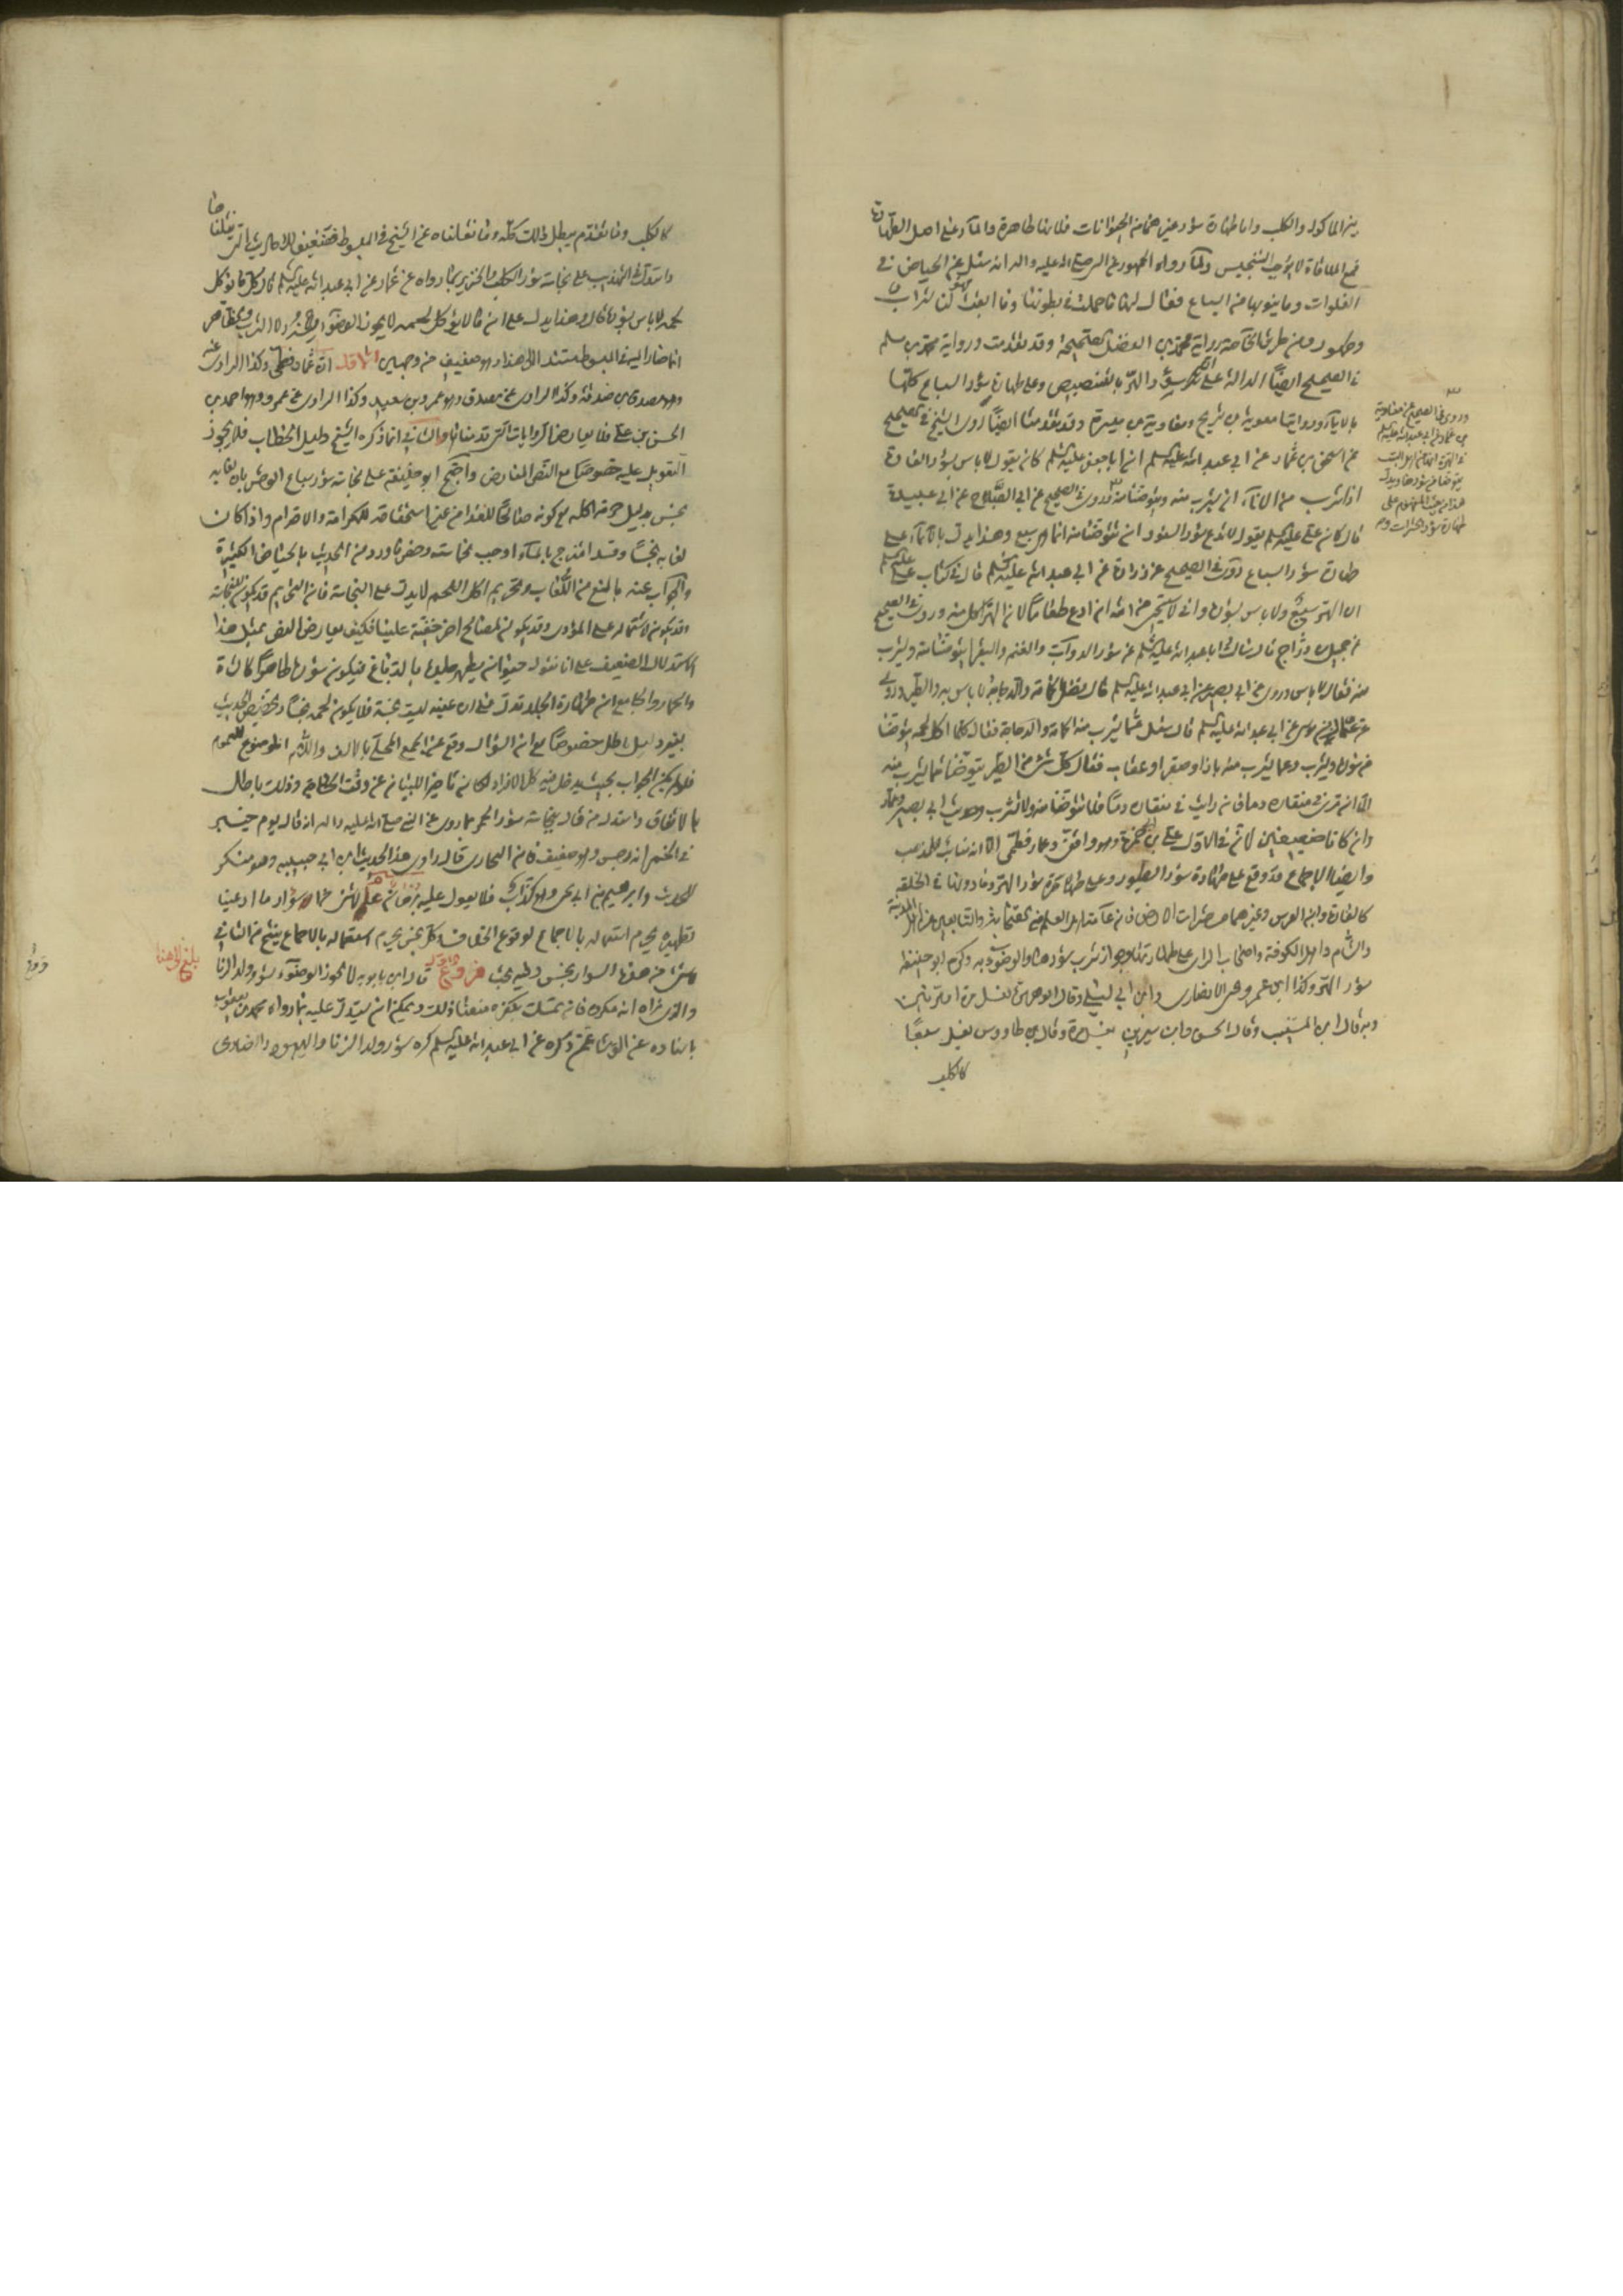 غير الماكول والكلب واما طهارة سؤر غيرهما من الحيوانات فلانها طاهرة والماء على اصل الطهارة
فمع الملاقاة لا يوجب التنجيس ولما رواه الجمهور عن النبي صلى الله عليه واله انه سئل عن الحياض في
الفلوات وما ينوبها من السباع فقال لها ما حملت في بطونها وما ابقت فهو لنا شراب
وطهور ومن طريق الخاصة رواية الفضل الصحيحة وقد تقدمت ورواية محمد بن مسلم
في الصحيح ايضا الدالة على سؤر الهر بالتنصيص وعلى طهارة سؤر السباع كلها
بالايماء وروايتا معوية بن شريح ومعاوية بن ميسرة وقد تقدمتا ايضا روى الشيخ في الصحيح
عن اسحق بن عمار عن ابي عبد الله عليه السلم ان ابا جعفر عليه السلم كان يقول لا باس بسؤر الفارة
اذا شربت من الاناء ان يشرب منه ويتوضأ منه وروى في الصحيح عن ابي الصباح عن ابي عبد الله
قال كان علي عليه السلم يقول لا تدع سؤر السنور ان تتوضأ منه انما هي سبع وهذا يدل بالايماء على
طهارة سؤر السباع روى في الصحيح عن زرارة عن ابي عبد الله عليه السلم قال في كتاب علي عليه السلم
ان الهر سبع ولا باس بسؤره واني لاستحيي من الله ان ادع طعاما لان الهر اكل منه وروى في الصحيح
عن جميل بن دراج قال سالت ابا عبد الله عليه السلم عن سؤر الدواب والغنم والبقر ايتوضأ منه ويشرب
منه فقال لا باس وروى عن ابي بصير عن ابي عبد الله عليه السلم قال فضل الحمامة والدجاجة لا باس به والطير وروى
عن عمار بن موسى عن ابي عبد الله عليه السلم قال سئل عما يشرب منه الحمامة والدجاجة فقال كلما اكل لحمه يتوضأ
من سؤره ويشرب وعما يشرب منه باز او صقر او عقاب فقال كل شئ من الطير يتوضأ مما يشرب منه
الا ان ترى في منقاره دما فان رايت في منقاره دما فلا تتوضأ منه ولا تشرب وحديث ابي بصير وعمار
وان كانا ضعيفين لان في الاول علي بن ابي حمزة وهو واقفي وعمار فطحي الا انه مناسب للمذهب
وايضا الاجماع قد وقع على طهارة سؤر الطيور وعلى طهارة سؤر الهر وما دونها في الخلقة
كالفارة وابن العرس وغيرهما من حشرات الارض فان عامة اهل العلم من الصحابة والتابعين من اهل المدينة
والشام واهل الكوفة واصحاب الراى على طهارتها وجواز شرب سؤرها والوضوء به وكره ابو حنيفة
سؤر الهر وكذا ابن عمر ويحيى الانصارى وابن ابي ليلى وقال ابو هريرة يغسل مرة او مرتين
وبه قال ابن المسيب وقال الحسن وابن سيرين يغسل مرة وقال طاووس يغسل سبعا
كالكلب
وروى في الصحيح عن معاوية
بن عمار عن ابي عبد الله عليه السلم
في الهرة انها من اهل البيت
يتوضأ من سؤرها ويدل
هذا من حيث المفهوم على
طهارة سؤر الحشرات
كالكلب وما تقدم يبطل ذلك كله وما نقلناه عن الشيخ في المبسوط فضعيف للاحاديث التي نقلناها
واستدل في التهذيب على نجاسة سؤر الكلب والخنزير بما رواه عن عمار عن ابي عبد الله عليه السلم قال كل ما يؤكل
لحمه لا باس بسؤره قال وهذا يدل على ان ما لا يؤكل لحمه لا يجوز الوضوء به ولا الشرب
انما صار اليه في المبسوط مستندا الى هذا وهو ضعيف من وجهين الاول ان عمار فطحي وكذا الراوى عنه
وهو مصدق بن صدقة وكذا الراوى عن مصدق وهو عمرو بن سعيد وكذا الراوى عن عمرو وهو احمد بن
الحسن بن علي فلا يعارض الروايات التي قدمناها والثاني انما ذكره الشيخ دليل الخطاب فلا يجوز
التعويل عليه خصوصا مع النص المعارض واحتج ابو حنيفة على نجاسة سؤر سباع الوحش بان لعابه
نجس بدليل حرمة اكله مع كونه صالحا للغذاء من غير استحقاقه للكرامة والاحترام واذا كان
لعابه نجسا وقد امتزج بالماء اوجب نجاسته وحمل ما ورد من الحديث بالحياض الكثيرة
والجواب عنه بالمنع من اللعاب وتحريم اكل اللحم لا يدل على النجاسة فان التحريم قد يكون للنجاسة
وقد يكون لاشتماله على المؤذى وقد يكون لمصالح اخر خفية علينا فكيف يعارض النص بمثل هذا
الاستدلال الضعيف على انا نقول حيوان يطهر جلده بالدباغ فيكون سؤره طاهرا كالشاة
والحمار والجامع ان طهارة الجلد تدل على ان عينه ليست نجسة فلا يكون لحمه نجسا وتخصيص الحديث
بغير دليل باطل خصوصا مع ان السؤال وقع عن الجمع المحلى بالالف واللام الموضوع للعموم
فلو لم يكن الجواب بحيث يدخل فيه كل الافراد لكان تاخيرا للبيان عن وقت الحاجة وذلك باطل
بالاتفاق واستدل من قال بنجاسة سؤر الحمر بما روى عن النبي صلى الله عليه واله انه قال يوم خيبر
في الحمر انها رجس وهو ضعيف قال البخارى قال راوى هذا الحديث ابن ابي حبيبة وهو منكر
الحديث وابراهيم بن ابي يحيى وهو كذاب فلا يعول عليه
تطهيره يحرم استعماله بالاجماع لوقوع الخلاف وكل نجس يحرم استعماله بالاجماع ينتج من الثاني
لا شئ من هذه الاسوار بنجس وفيه بحث فروع الاول قال ابن بابويه لا يجوز الوضوء بسؤر ولد الزنا
والذى نراه انه مكروه فان تمسك بكفره منعنا ذلك ويمكن ان يستدل عليه بما رواه محمد بن يعقوب
باسناده عن الوشا عمن ذكره عن ابي عبد الله عليه السلم كره سؤر ولد الزنا واليهودى والنصارى
بلغ الى هنا